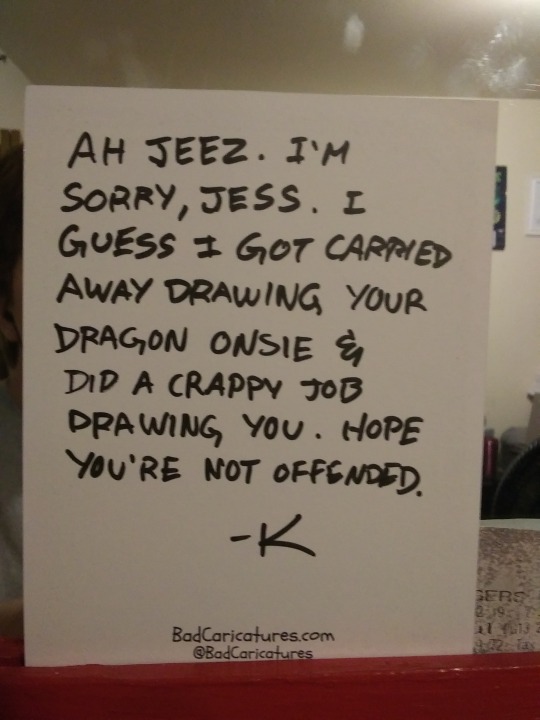 AH JEEZ. I'M
SORRY, JESS. I
GUESS I GOT CARRIED
AWAY DRAWING YOUR
DRAGON ONSIE &
DID A CRAPPY JOB
DRAWING YOU. HOPE
YOU'RE NOT OFFENDED.
-K
BadCaricatures.com
@BadCaricatures